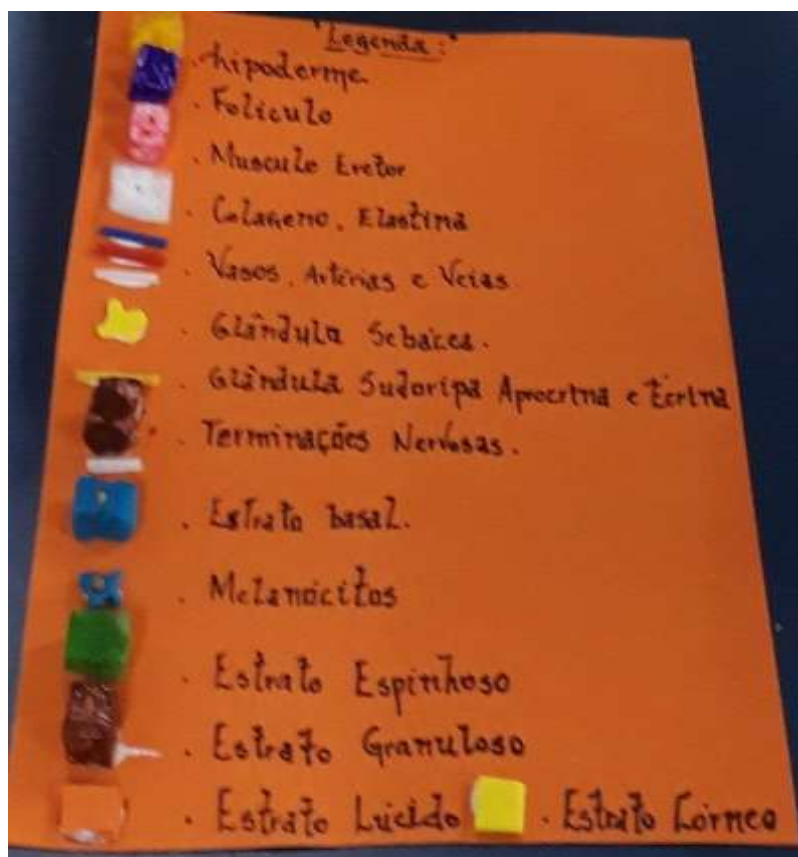 "Legenda:"
. hipoderme
. Folículo
. Musculo Eretor
. Colageno, Elastina
. Vasos, Artérias e Veias
. Glândula Sebacea.
. Glândula Sudoripa Apocrina e Écrina
. Terminações Nervosas.
. Estrato basal.
. Melanócitos
. Estrato Espinhoso
. Estrato Granuloso
. Estrato Lúcido . Estrato Córneo